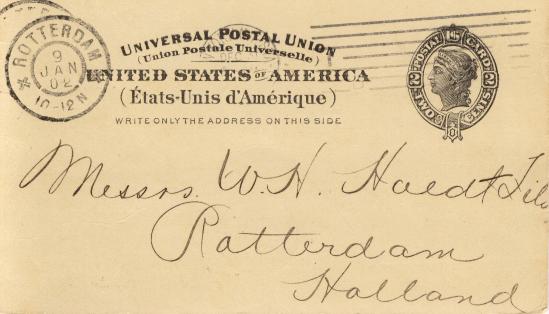 ROTTERDAM
9
JAN
02
10-12N
UNIVERSAL POSTAL UNION
(Union Postale Universelle)
UNITED STATES OF AMERICA
(États-Unis d'Amérique)
WRITE ONLY THE ADDRESS ON THIS SIDE
DEC
U.S. POSTAL CARD
2 TWO CENTS 2
Messrs. W. H.
Rotterdam
Holland